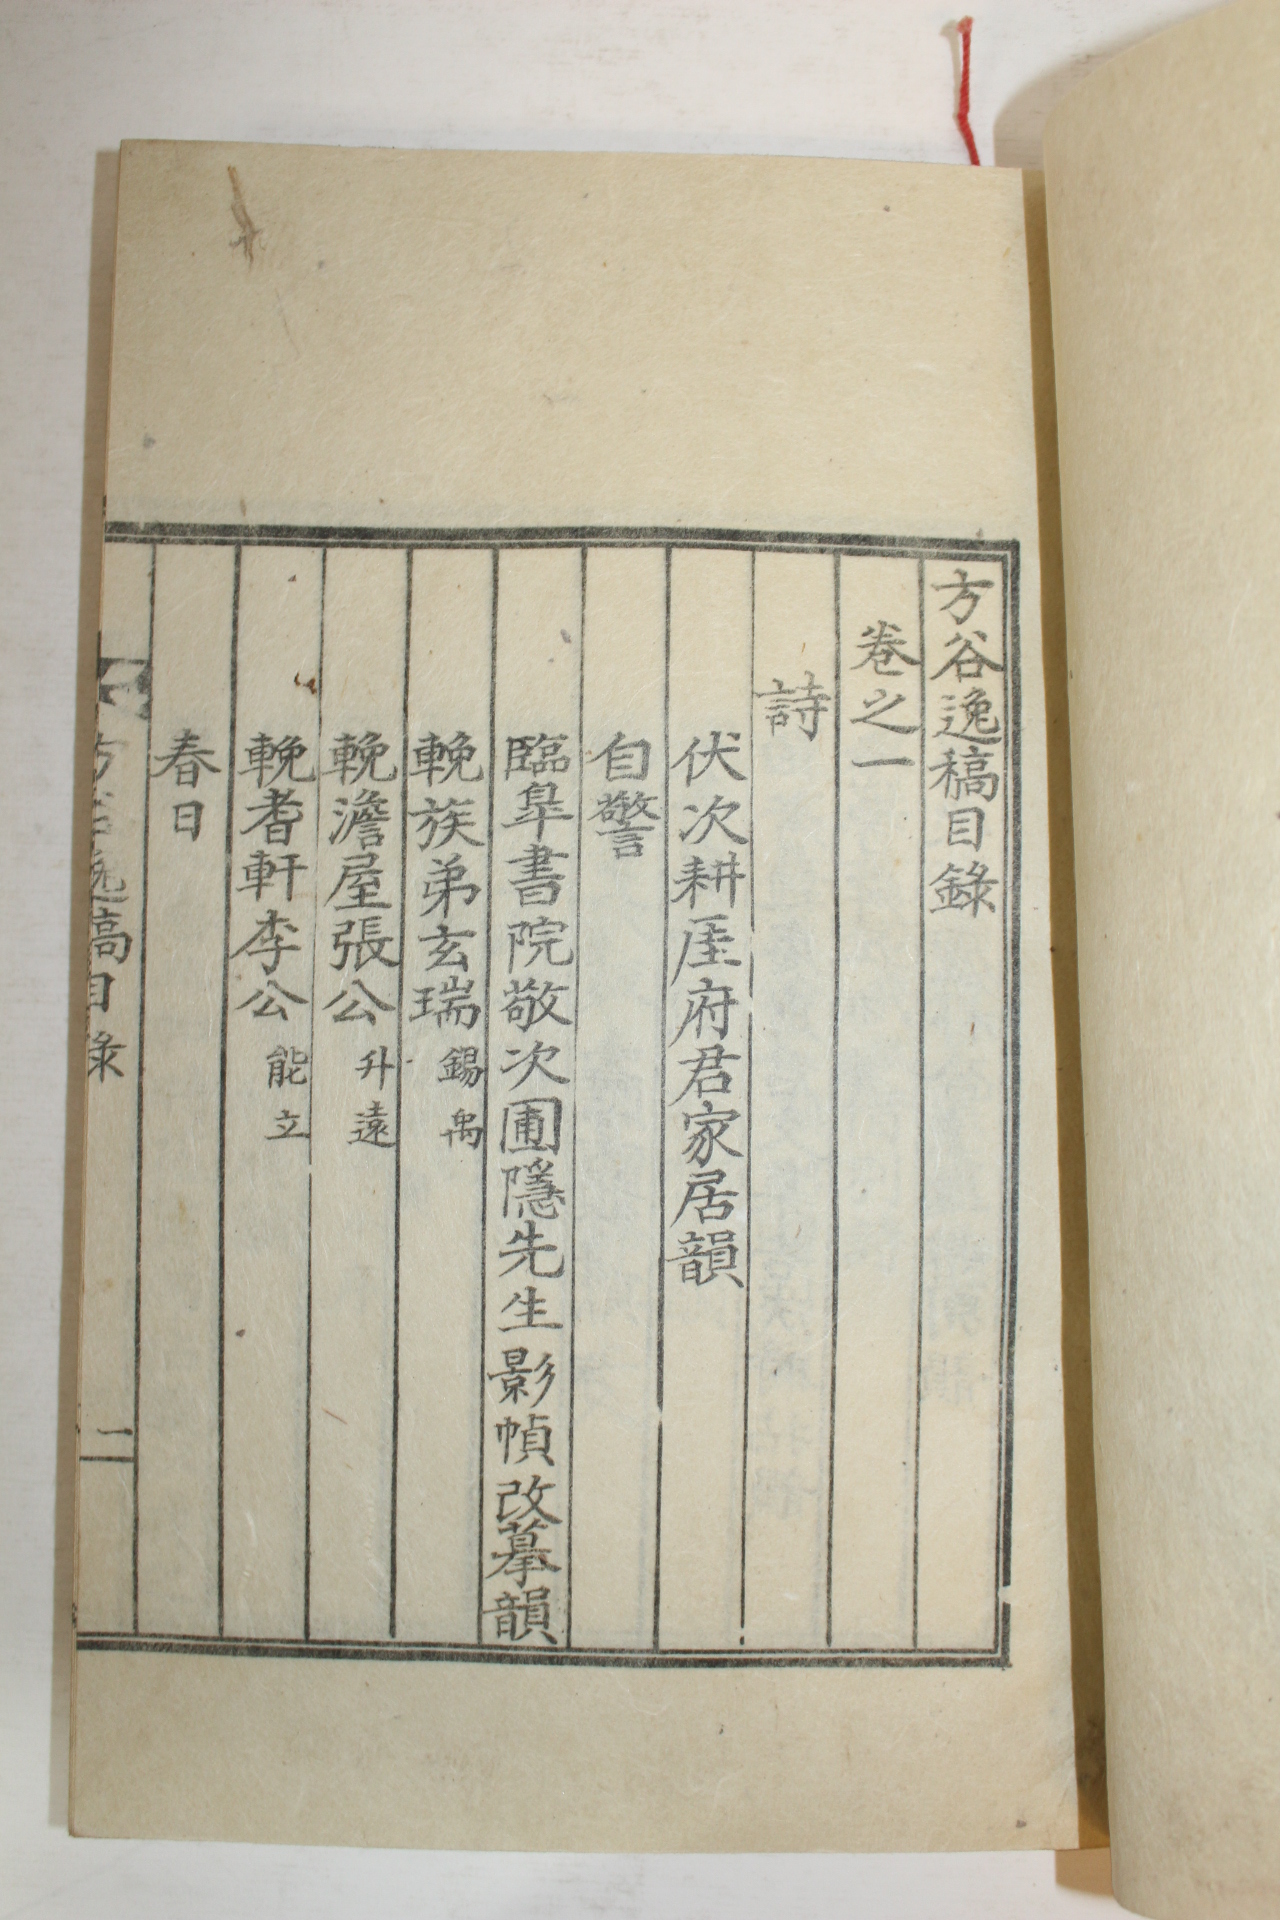 方谷逸稿目錄
卷之一
詩
伏次耕厓府君家居韻
自警
臨皐書院敬次圃隱先生影幀改摹韻
輓族弟玄瑞 錫禹
輓澹屋張公 升遠
輓耆軒李公 能立
春日
方谷逸稿目錄 一